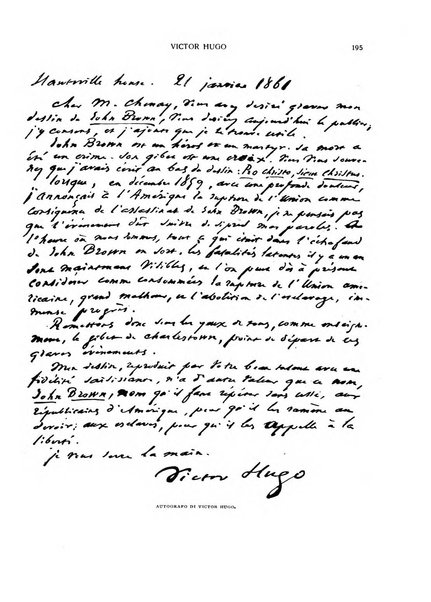 VICTOR HUGO
195
Hauteville house. 21 janvier 1861
Cher M. Chenay, Vous avez désiré graver mon
dessin de John Brown, Vous désirez aujourd'hui le publier;
j'y consens, et j'ajoute que je le trouve utile.
John Brown est un héros et un martyr. Sa mort a
été un crime. Son gibet est une croix. Vous vous souve-
nez que j'avais écrit au bas du dessin: Pro Christo, sicut Christus.
lorsque, en décembre 1859, avec une profonde douleur,
j'annonçais à l'Amérique la rupture de l'Union comme
conséquence de l'assassinat de John Brown, je ne pensais pas
que l'événement dût suivre de si près mes paroles. A
l'heure où nous sommes, tout ce qui était dans l'échafaud
de John Brown en sort; les fatalités latentes il y a un an
sont maintenant visibles, et l'on peut dès à présent
considérer comme consommées la rupture de l'Union amé-
ricaine, grand malheur, et l'abolition de l'esclavage, im-
mense progrès.
Remettons donc sous les yeux de tous, comme enseigne-
ment, le gibet de Charlestown, point de départ de ces
graves événements.
Mon dessin, reproduit par votre beau talent avec une
fidélité saisissante, n'a d'autre valeur que ce nom,
John Brown, nom qu'il faut répéter sans cesse, aux
républicains d'Amérique, pour qu'il les ramène au
devoir; aux esclaves, pour qu'il les appelle à la
liberté.
je vous serre la main.
Victor Hugo
AUTOGRAFO DI VICTOR HUGO.